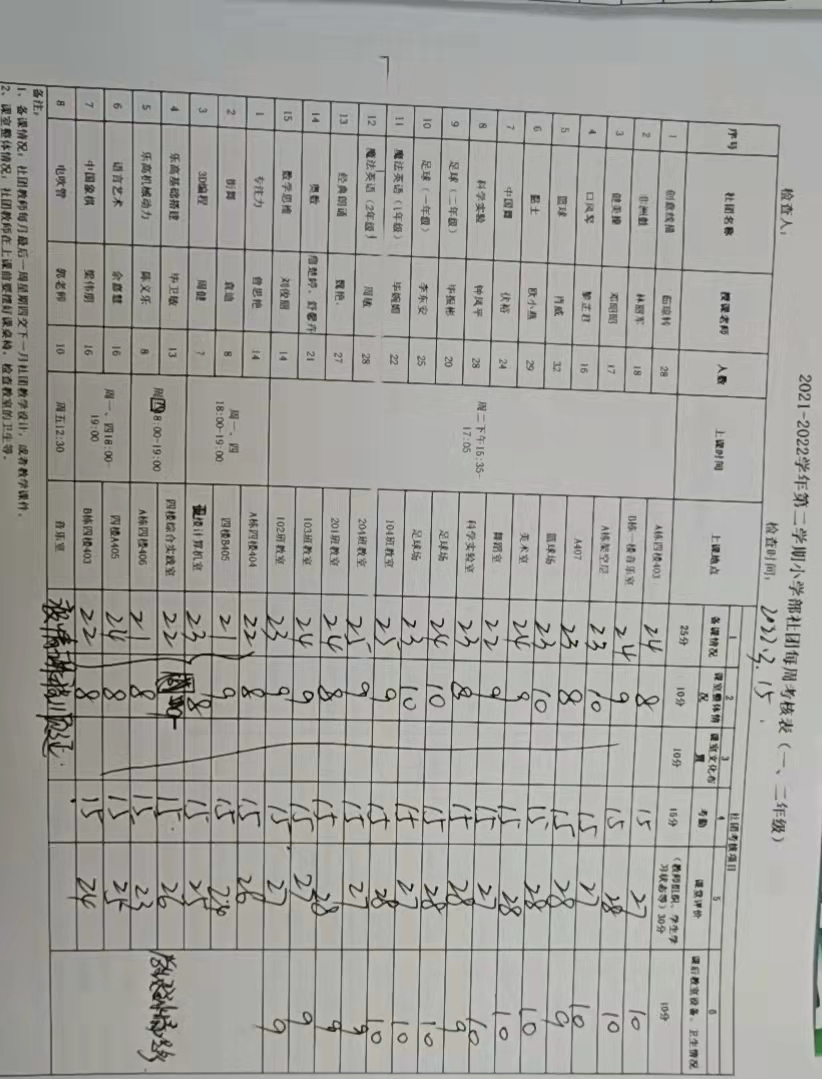 2021-2022学年第二学期小学部社团每周考核表（一、二年级）
检查人： 检查时间：2022.3.15.
序号 社团名称 授课老师 人数 上课时间 上课地点 社团考核项目
1 备课情况 2 课室整体情况 3 课室文化布置 4 考勤 5 课堂评价 6 课后教室设备、卫生情况
25分 10分 10分 15分 （教师组织、学生学习状态等）30分 10分
1 创意线描 28 A栋四楼403 24 8 15 27 10
2 非洲鼓 林冠军 18 B栋一楼音乐室 24 9 15 28 10
3 健美操 邓昭昭 17 A栋架空层 23 10 15 27 10
4 口风琴 黎芷君 16 A407 23 8 15 28 9
5 篮球 肖威 32 篮球场 23 10 15 28 10
6 黏土 欧小燕 29 美术室 24 9 15 28 10
7 中国舞 伏裕 24 周二下午15:35-17:05 舞蹈室 22 9 15 27 10
8 科学实验 钟凤平 28 科学实验室 23 8 15 28 9
9 足球（二年级） 毕振彬 20 足球场 24 10 15 28 10
10 足球（一年级） 李东安 25 足球场 23 10 15 27 10
11 魔法英语（1年级） 毕婉媚 22 104班教室 25 9 15 28 10
12 魔法英语（2年级） 周敏 28 204班教室 25 9 15 27 9
13 经典朗诵 魏艳 27 201班教室 24 8 15 28 9
14 奥数 詹楚婷、舒馨卉 21 103班教室 24 9 15 27 9
15 数学思维 刘俊丽 14 102班教室 23 9 15 27 9
1 专注力 曾思艳 14 A栋四楼404 22 8 15 26
2 街舞 袁迪 8 周一、四18:00-19:00 四楼B405 21 9 15
3 3D编程 周健 7 楼计算机室 23 8 15 25
4 乐高基础搭建 毕卫敏 13 四楼综合实践室 22 15 26
5 乐高机械动力 陈义乐 8 周四18:00-19:00 A栋四楼406 21 8 15 23
6 语言艺术 余嘉慧 16 周一、四18:00-19:00 四楼A405 24 8 15 25
7 中国象棋 梁伟明 16 B栋四楼403 22 8 15 24
8 电吹管 郭老师 10 周五12:30 音乐室
备注：
1、备课情况，社团教师每月最后一周星期四交下一月社团教学设计，或者教学课件。
2、课室整体情况，社团教师在上课前要摆好课桌椅，检查教室的卫生等。